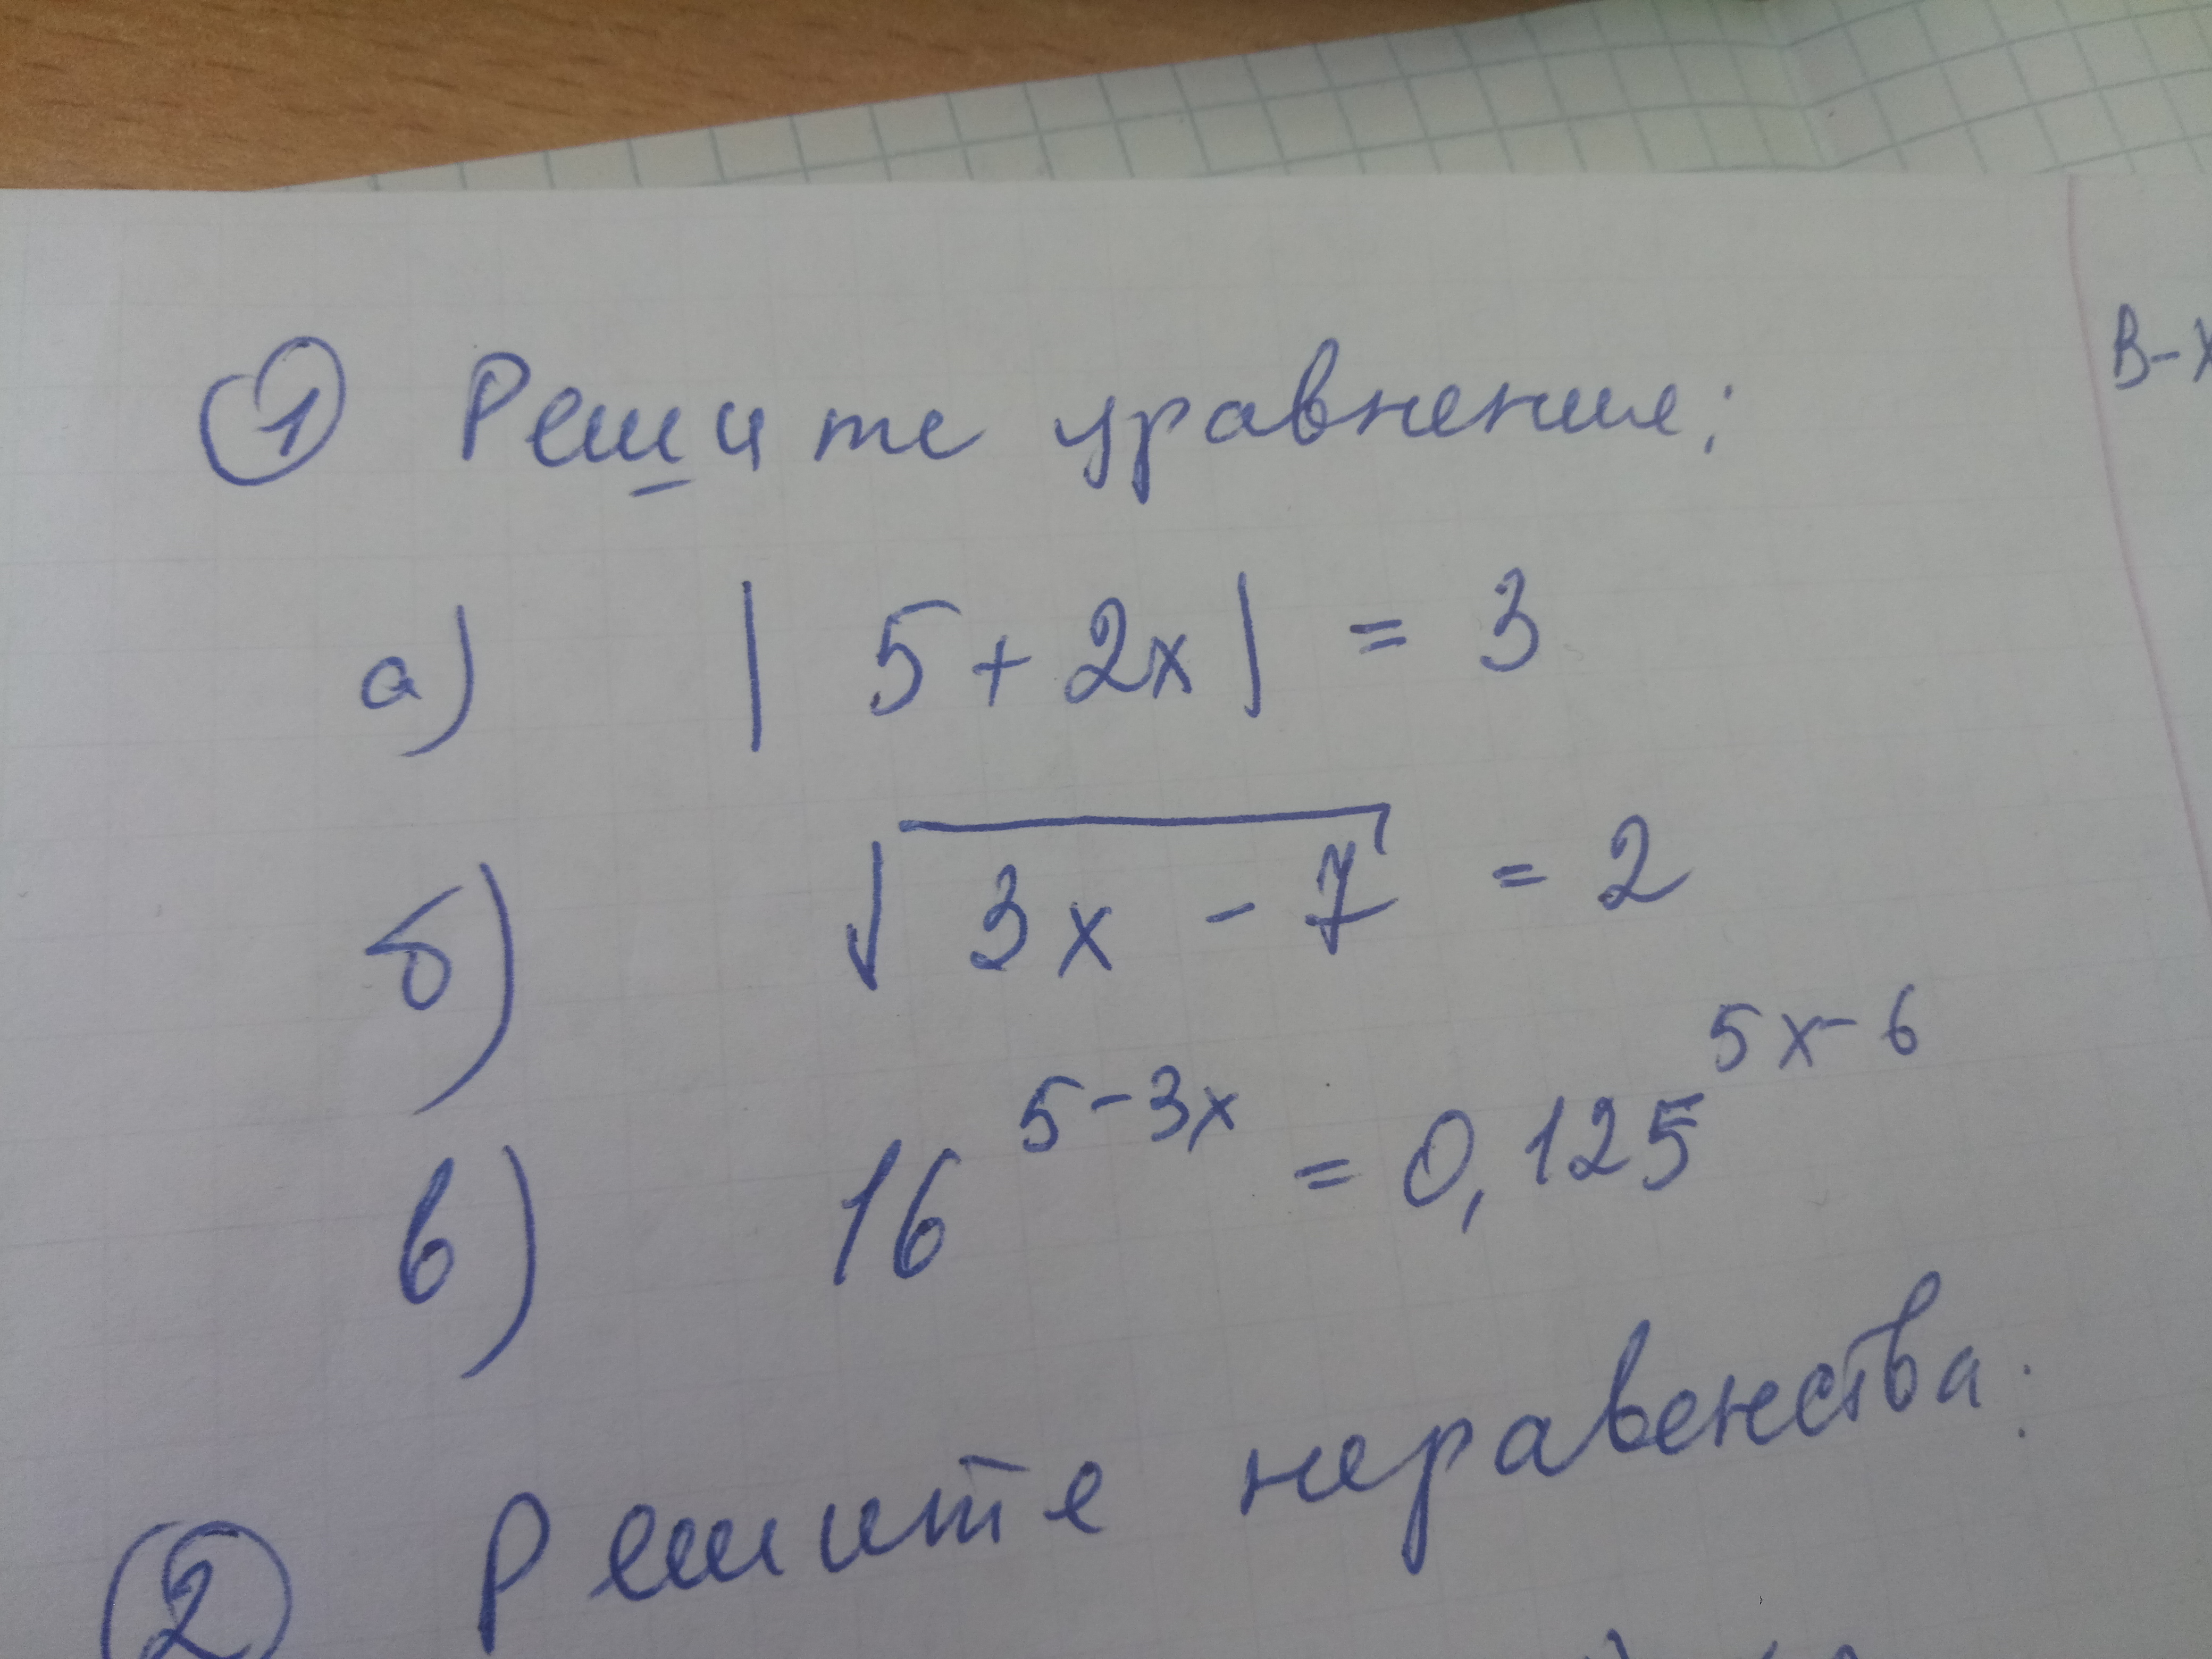 1 Решите уравнение:
а) | 5 + 2x | = 3
б) √3x - 7 = 2
в) 16^5-3x = 0,125^5x-6
2 Решите неравенства:
В-